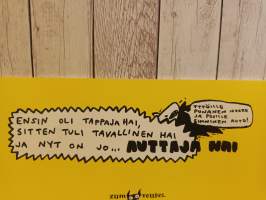 ENSIN OLI TAPPAJAHAI,
SITTEN TULI TAVALLINEN HAI
JA NYT ON JO... AUTTAJA HAI
TYTÖILLE
PUNAINEN
JA POJILLE
SININEN AUTO!
zum teufel